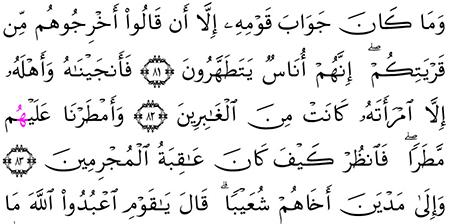 وَمَا كَانَ جَوَابَ قَوْمِهِۦٓ إِلَّآ أَن قَالُوٓا۟ أَخْرِجُوهُم مِّن
قَرْيَتِكُمْ ۖ إِنَّهُمْ أُنَاسٌ يَتَطَهَّرُونَ ﴿٨١﴾ فَأَنجَيْنَـٰهُ وَأَهْلَهُۥٓ
إِلَّا ٱمْرَأَتَهُۥ كَانَتْ مِنَ ٱلْغَـٰبِرِينَ ﴿٨٢﴾ وَأَمْطَرْنَا عَلَيْهُم
مَّطَرًا ۖ فَٱنظُرْ كَيْفَ كَانَ عَـٰقِبَةُ ٱلْمُجْرِمِينَ ﴿٨٣﴾
وَإِلَىٰ مَدْيَنَ أَخَاهُمْ شُعَيْبًا ۗ قَالَ يَـٰقَوْمِ ٱعْبُدُوا۟ ٱللَّهَ مَا